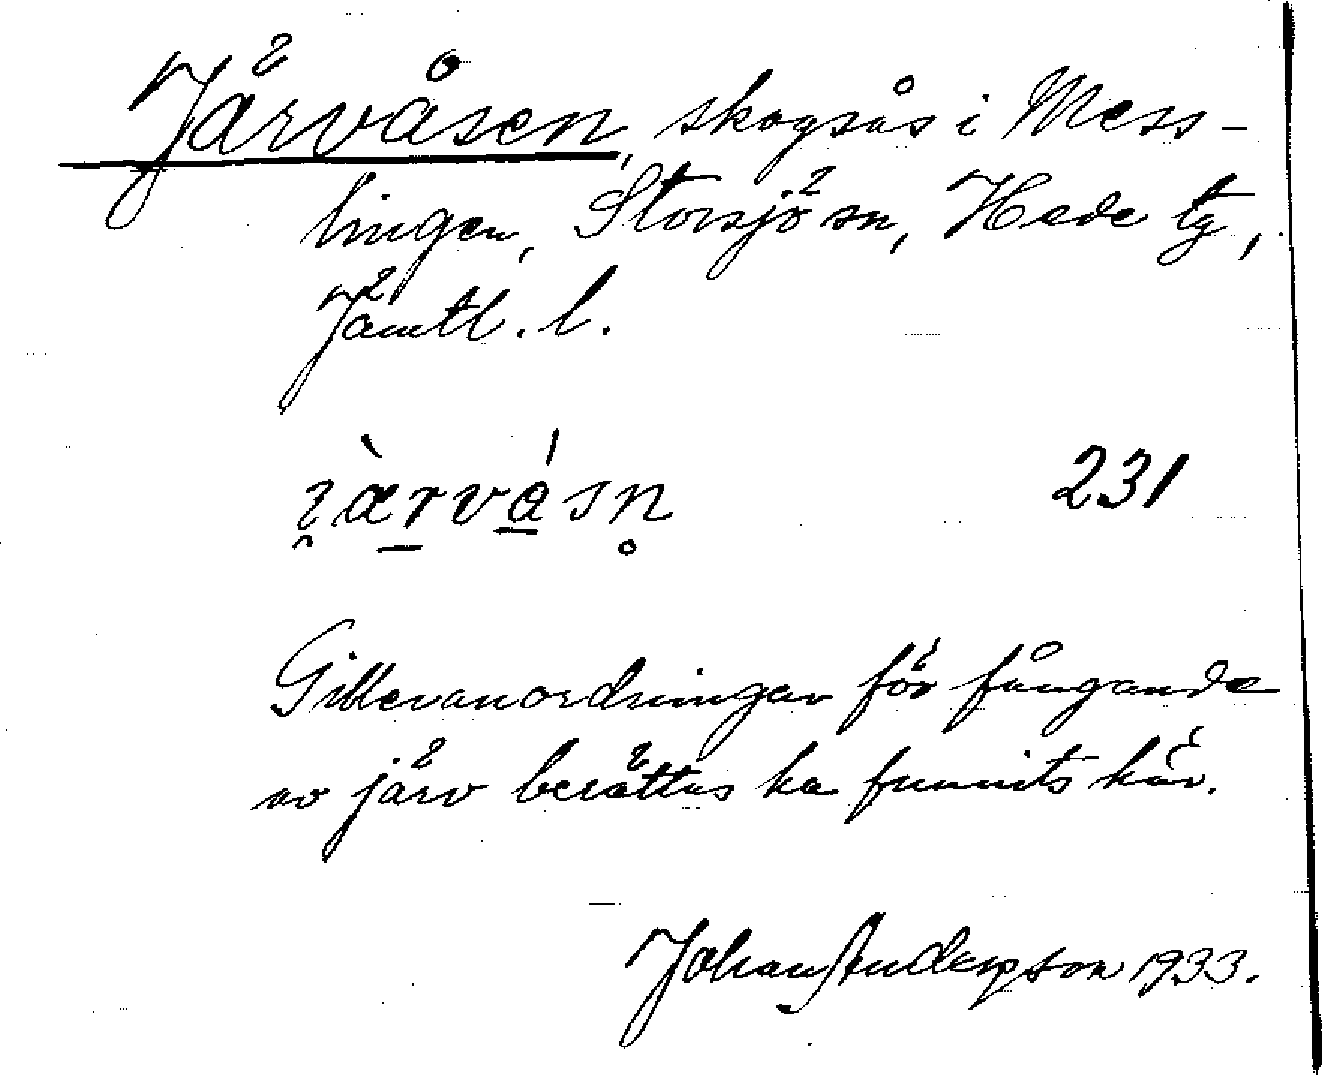 Järvåsen, skogsås i Mess-
lingen, Storsjö sn, Hede tg,
Jämtl. l.
231
Gillevanordningar för fångande
av järv berättas ha funnits här.
Johan Anderson 1933.